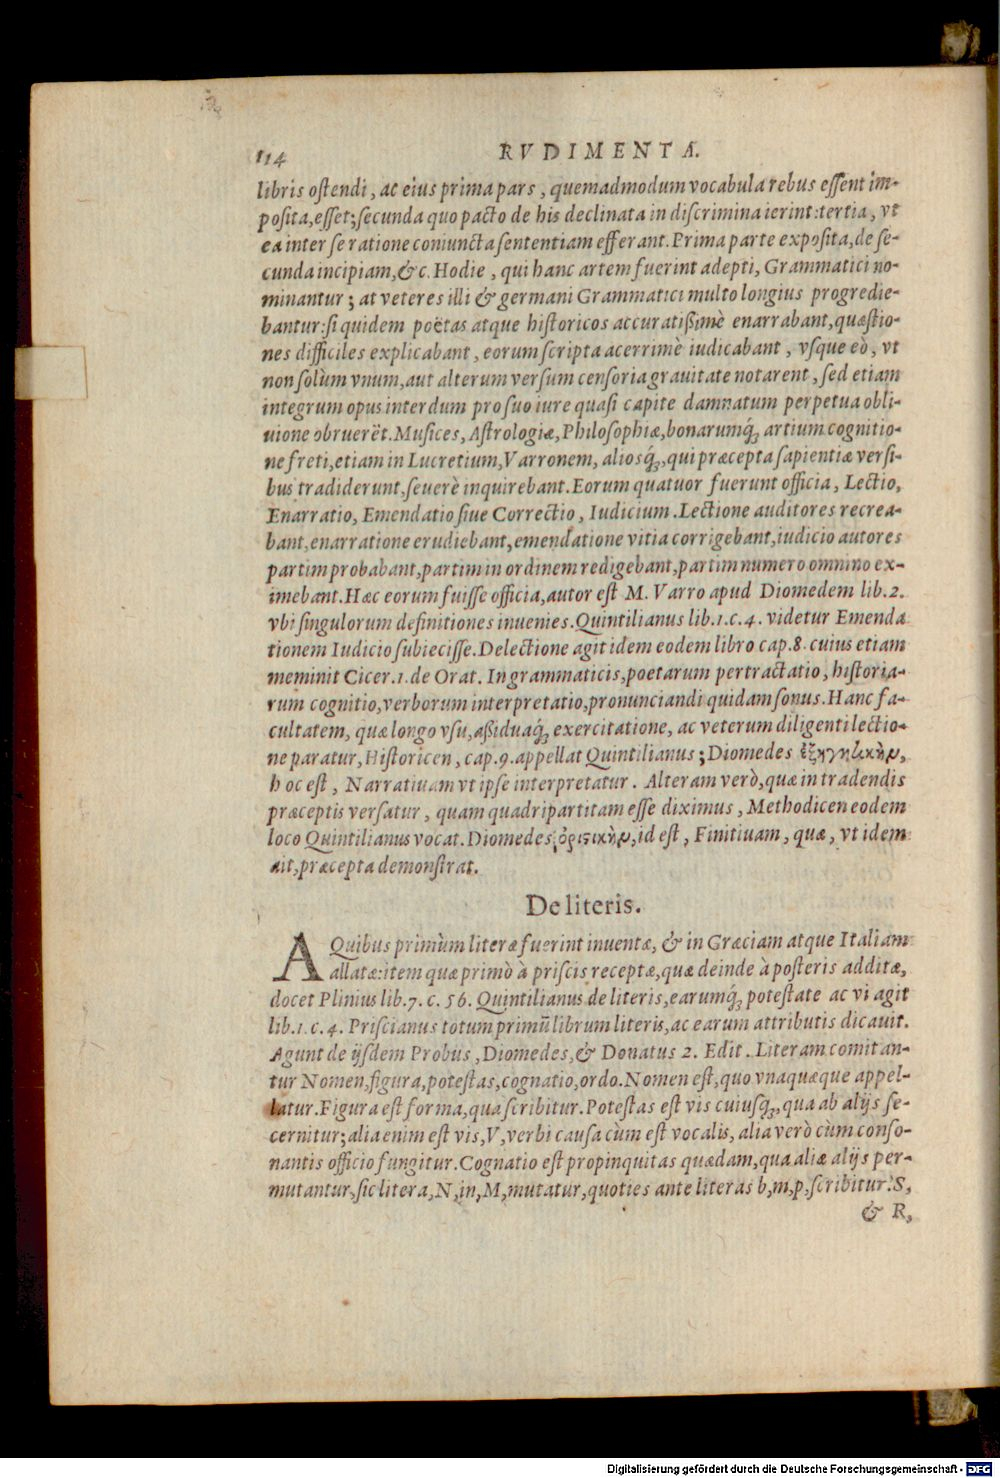 114 RVDIMENTA.
libris ostendi, ac eius prima pars, quemadmodum vocabula rebus essent im-
posita, esset; secunda quo pacto de his declinata in discrimina ierint: tertia, vt
ea inter se ratione coniuncta sententiam efferant. Prima parte exposita, de se-
cunda incipiam, &c. Hodie, qui hanc artem fuerint adepti, Grammatici no-
minantur; at veteres illi & germani Grammatici multo longius progredie-
bantur: siquidem poëtas atque historicos accuratißimè enarrabant, quæstio-
nes difficiles explicabant, eorum scripta acerrimè iudicabant, vsque eò, vt
non solùm vnum, aut alterum versum censoria grauitate notarent, sed etiam
integrum opus interdum pro suo iure quasi capite damnatum perpetua obli-
uione obruerẽt. Musices, Astrologiæ, Philosophiæ, bonarumq́; artium cognitio-
ne freti, etiam in Lucretium, Varronem, aliosq́;, qui præcepta sapientiæ versi-
bus tradiderunt, seuerè inquirebant. Eorum quatuor fuerunt officia, Lectio,
Enarratio, Emendatio siue Correctio, Iudicium. Lectione auditores recrea-
bant, enarratione erudiebant, emendatione vitia corrigebant, iudicio autores
partim probabant, partim in ordinem redigebant, partim numero omnino ex-
imebant. Hæc eorum fuisse officia, autor est M. Varro apud Diomedem lib. 2.
vbi singulorum definitiones inuenies. Quintilianus lib. 1. c. 4. videtur Emenda
tionem Iudicio subiecisse. De lectione agit idem eodem libro cap. 8. cuius etiam
meminit Cicer. 1. de Orat. In grammaticis, poetarum pertractatio, historia-
rum cognitio, verborum interpretatio, pronunciandi quidam sonus. Hanc fa-
cultatem, quæ longo vsu, aßiduaq́; exercitatione, ac veterum diligenti lectio-
ne paratur, Historicen, cap. 9. appellat Quintilianus; Diomedes ἐξηγητικὴν,
hoc est, Narratiuam vt ipse interpretatur. Alteram verò, quæ in tradendis
præceptis versatur, quam quadripartitam esse diximus, Methodicen eodem
loco Quintilianus vocat. Diomedes, ὁριστικὴν, id est, Finitiuam, quæ, vt idem
ait, præcepta demonstrat.
De literis.
A Quibus primùm literæ fuerint inuentæ, & in Græciam atque Italiam
allatæ: item quæ primò à priscis receptæ, quæ deinde à posteris additæ,
docet Plinius lib. 7. c. 56. Quintilianus de literis, earumq́; potestate ac vi agit
lib. 1. c. 4. Priscianus totum primũ librum literis, ac earum attributis dicauit.
Agunt de ijsdem Probus, Diomedes, & Donatus 2. Edit. Literam comitan-
tur Nomen, figura, potestas, cognatio, ordo. Nomen est, quo vnaquæque appel-
latur. Figura est forma, qua scribitur. Potestas est vis cuiusq́;, qua ab alijs se-
cernitur; alia enim est vis, V, verbi causa cùm est vocalis, alia verò cùm conso-
nantis officio fungitur. Cognatio est propinquitas quædam, qua aliæ alijs per-
mutantur, sic litera, N, in, M, mutatur, quoties ante literas b, m, p, scribitur: S,
& R,
Digitalisierung gefördert durch die Deutsche Forschungsgemeinschaft - DFG